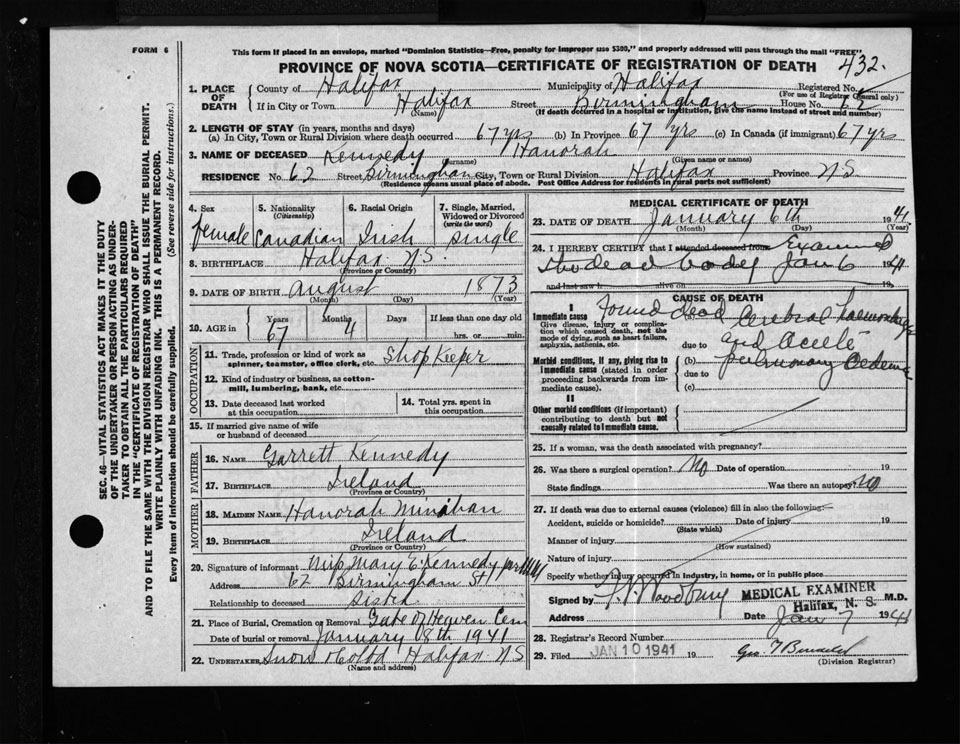 FORM 6
This form if placed in an envelope, marked "Dominion Statistics—Free, penalty for improper use $300," and properly addressed will pass through the mail "FREE"
PROVINCE OF NOVA SCOTIA—CERTIFICATE OF REGISTRATION OF DEATH 432.
1. PLACE OF DEATH
County of Halifax Municipality of Halifax Registered No.
(For use of Registrar General only)
If in City or Town Halifax Street Birmingham House No. 62
(Name) (If death occurred in a hospital or institution, give the name instead of street and number)
2. LENGTH OF STAY (in years, months and days)
(a) In City, Town or Rural Division where death occurred 67 yrs (b) In Province 67 yrs (c) In Canada (if immigrant) 67 yrs
3. NAME OF DECEASED Kennedy Hanorah
(Surname) (Given name or names)
RESIDENCE No. 62 Street Birmingham City, Town or Rural Division Halifax Province N.S.
(Residence means usual place of abode. Post Office Address for residents in rural parts not sufficient)
4. Sex female
5. Nationality (Citizenship) Canadian
6. Racial Origin Irish
7. Single, Married, Widowed or Divorced (write the word) single
8. BIRTHPLACE Halifax N.S.
(Province or Country)
9. DATE OF BIRTH August 1873
(Month) (Day) (Year)
10. AGE in Years 67 Months 4 Days If less than one day old hrs. or min.
OCCUPATION
11. Trade, profession or kind of work as spinner, teamster, office clerk, etc. Shop Keeper
12. Kind of industry or business, as cotton-mill, lumbering, bank, etc.
13. Date deceased last worked at this occupation
14. Total yrs. spent in this occupation
15. If married give name of wife or husband of deceased
FATHER
16. NAME Garrett Kennedy
17. BIRTHPLACE Ireland
(Province or Country)
MOTHER
18. MAIDEN NAME Hanorah Minahan
19. BIRTHPLACE Ireland
(Province or Country)
20. Signature of informant Miss Mary E Kennedy
Address 62 Birmingham St
Relationship to deceased sister
21. Place of Burial, Cremation or Removal Gate of Heaven Cem
Date of burial or removal January 8th 1941
22. UNDERTAKER Snow & Co Ltd Halifax N.S
(Name and address)
MEDICAL CERTIFICATE OF DEATH
23. DATE OF DEATH January 6th 1941
(Month) (Day) (Year)
24. I HEREBY CERTIFY that I attended deceased from Examined
the dead body Jan 6 1941
and last saw h alive on 19
CAUSE OF DEATH
I
Immediate cause
Give disease, injury or complication which caused death, not the mode of dying, such as heart failure, asphyxia, asthenia, etc.
Found dead
(a) Cerebral haemorrhage
due to and acute
Morbid conditions, if any, giving rise to immediate cause (stated in order proceeding backwards from immediate cause).
(b) pulmonary oedema
due to
(c)
II
Other morbid conditions (if important) contributing to death but not causally related to immediate cause.
25. If a woman, was the death associated with pregnancy?
26. Was there a surgical operation? No Date of operation 19
State findings Was there an autopsy? No
27. If death was due to external causes (violence) fill in also the following:
Accident, suicide or homicide? Date of injury 19
(State which)
Manner of injury
(How sustained)
Nature of injury
Specify whether injury occurred in industry, in home, or in public place
Signed by Woodbury MEDICAL EXAMINER M.D.
Halifax, N. S.
Address Date Jan 7 1941
28. Registrar's Record Number
29. Filed JAN 10 1941 19
(Division Registrar)
SEC. 46—VITAL STATISTICS ACT MAKES IT THE DUTY OF THE UNDERTAKER OR PERSON ACTING AS UNDERTAKER TO OBTAIN ALL THE PARTICULARS REQUIRED IN THE "CERTIFICATE OF REGISTRATION OF DEATH" AND TO FILE THE SAME WITH THE DIVISION REGISTRAR WHO SHALL ISSUE THE BURIAL PERMIT.
WRITE PLAINLY WITH UNFADING INK. THIS IS A PERMANENT RECORD.
Every item of information should be carefully supplied. (See reverse side for instructions.)